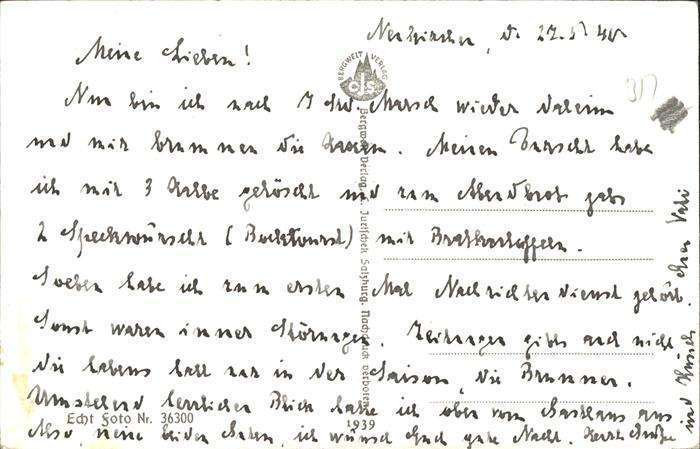 Neukirchen, d. 27.5.40
Meine Lieben!
Nun bin ich nach 7 Std. Marsch wieder daheim
und mir brummen die Haxen. Meinen Durscht habe
ich mit 3 Halbe gelöscht und zum Abendbrot gabs
2 Speckwürscht (Bockwurst) mit Bratkartoffeln.
Soeben habe ich zum ersten Mal Nachrichtendienst gehört.
Sonst waren immer Störungen. Zeitungen gibts auch nicht
die habens halt nur in der Saison, die Brunner.
Umstehend herrlichen Blick hatte ich oben vom Gasthaus aus
Also, meine beiden Guten, ich wünsch Euch gute Nacht. Herzl. Grüße
und Kusch. Euer Vati
317
BERGWELT VERLAG
Bergwelt-Verlag, Jurischek, Salzburg, Nachdruck verboten
Echt Foto Nr. 36300
1939